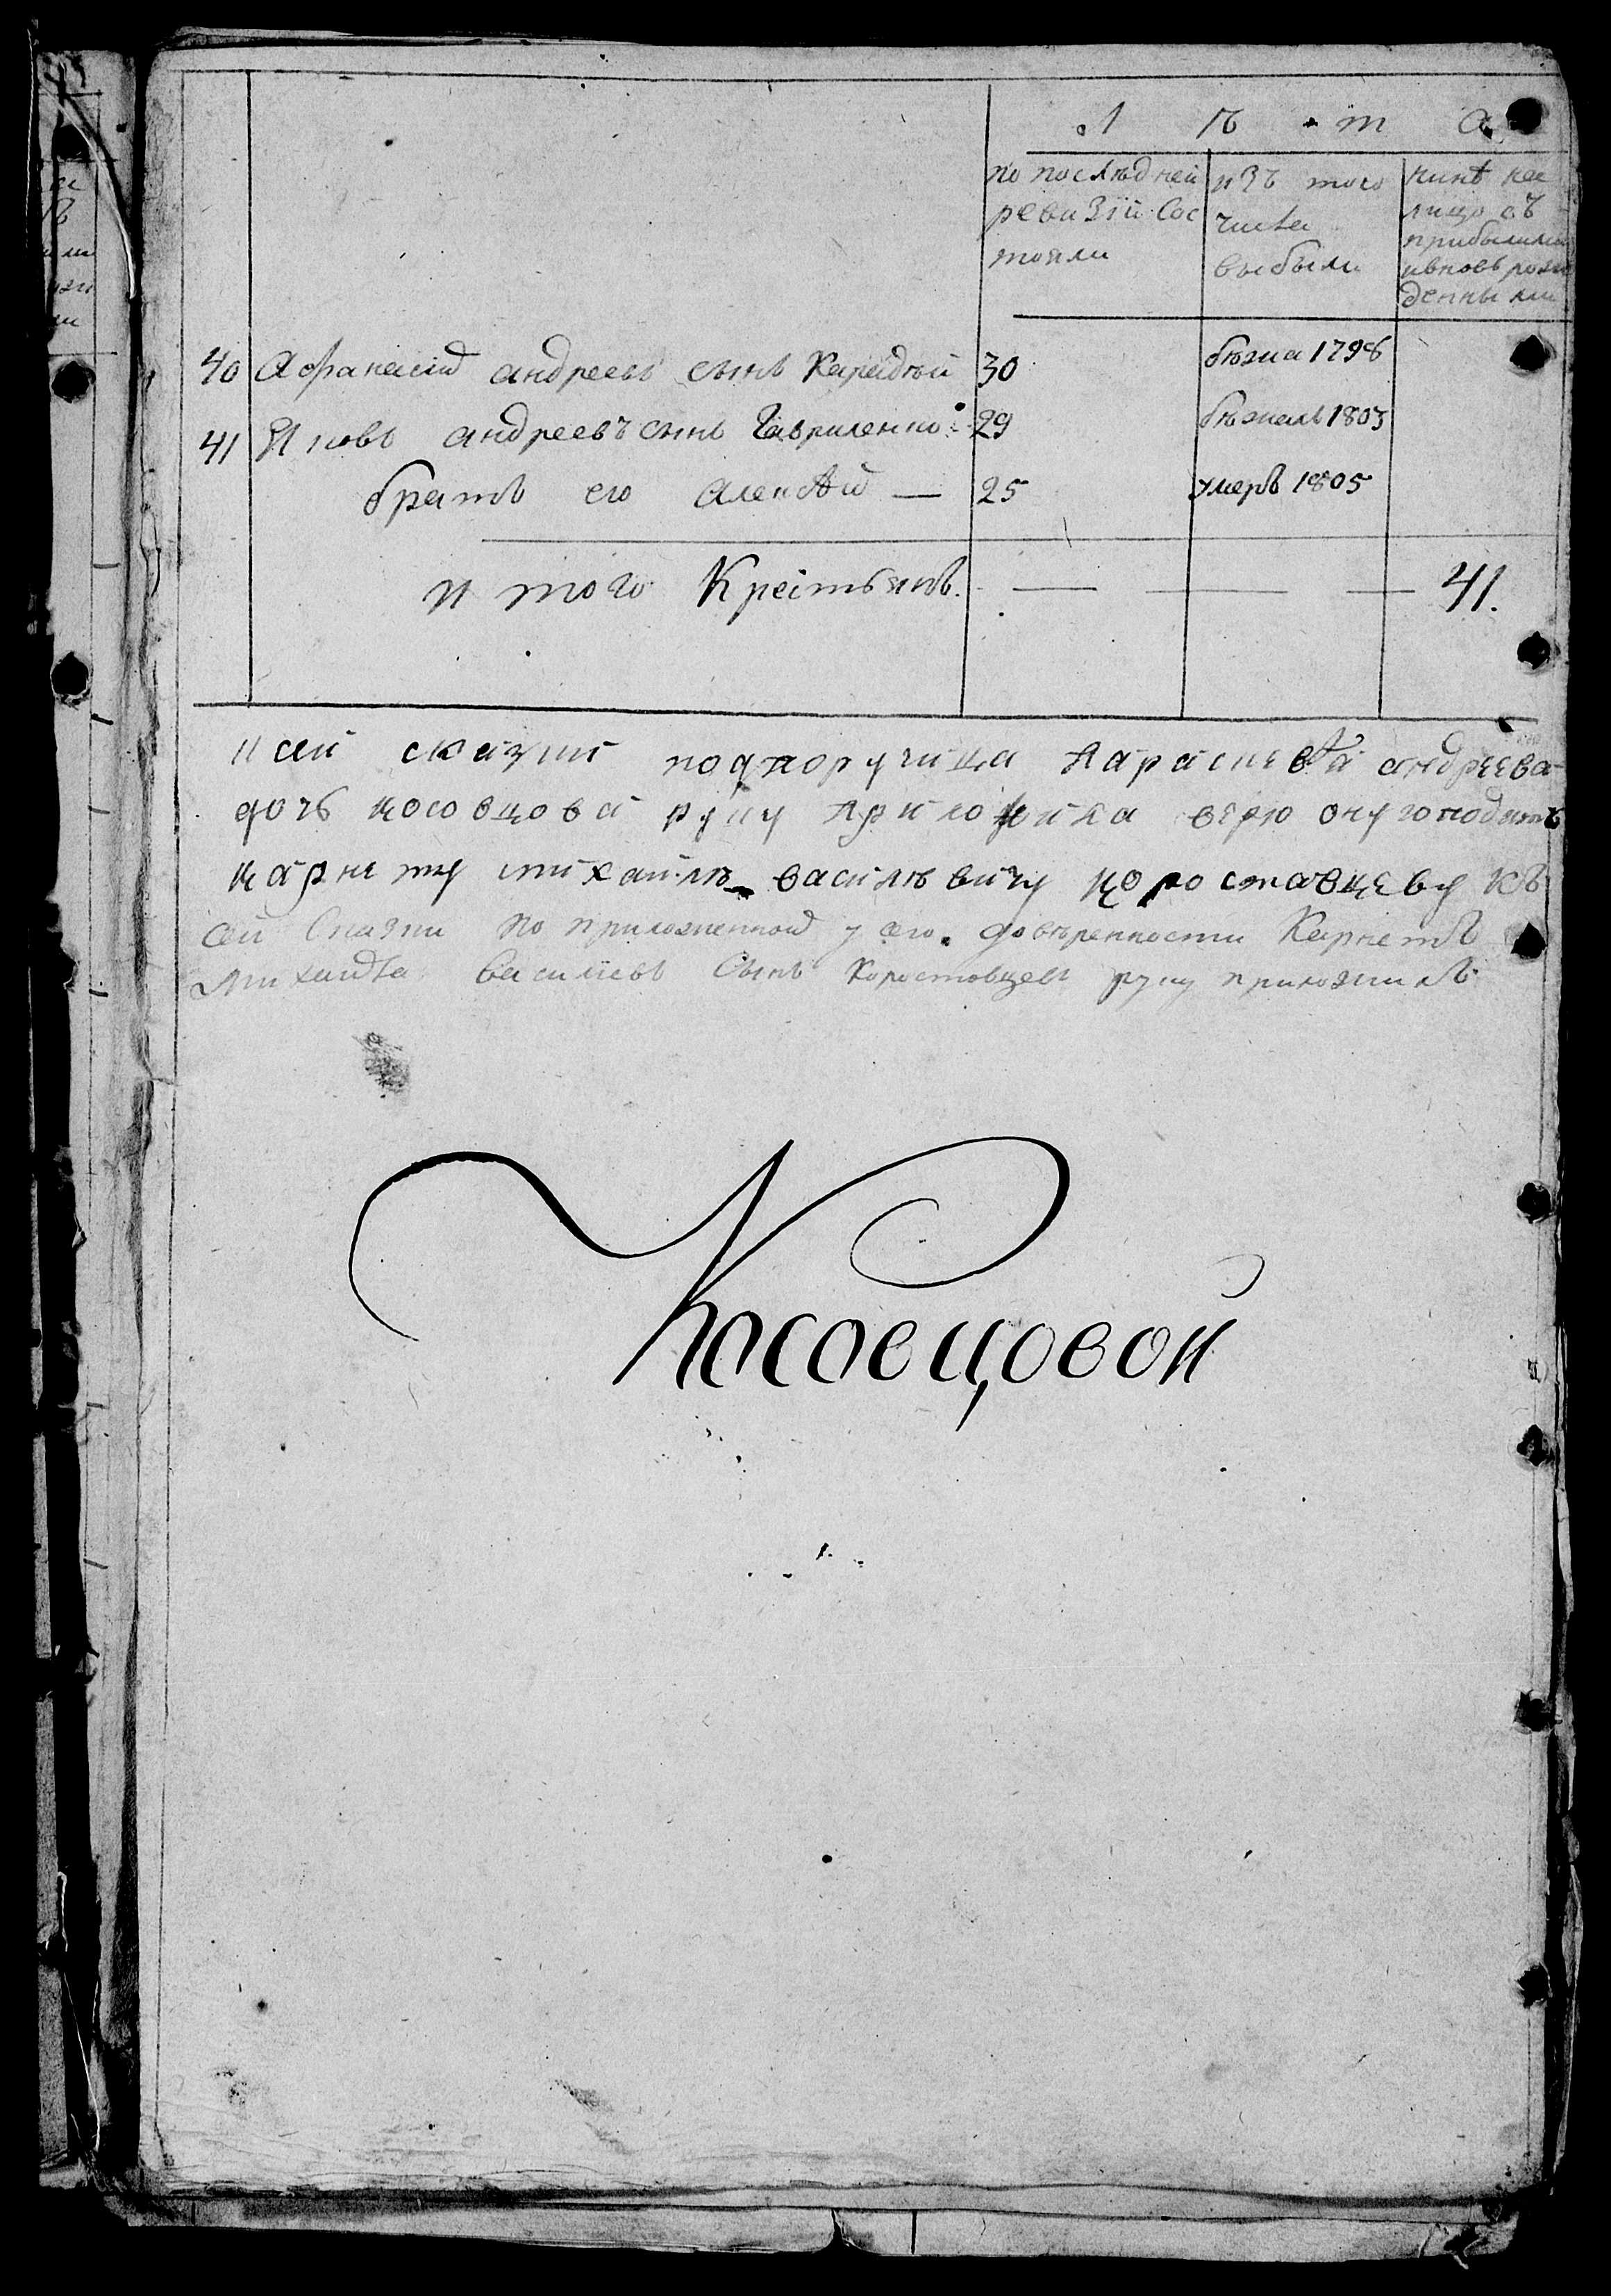 л ѣ т а
по послѣдней ревизіи сос тояли
изъ того числа выбыли
нинѣ на лицо съ прибылими ивновь рож денными
40 Афанасій андреевъ сынъ 30 бѣжа 1798
41 Яковъ андреевъ сынъ Гавриленко 29 бѣжалъ 1803
братъ его алексѣй — 25 умеръ 1805
и того Крестьянъ. — — — 41.
к сей скazки подпоручица параскевѣа андреева
дочь косовцова руку приложила верю ону господину
карнету михайлѣ василѣвичу коростовцеву къ
сей Сказки по приложенной у сего довѣренности Карнетъ
михайла васильевъ Сынъ Коростовцевъ руку приложилъ
Косовцовой